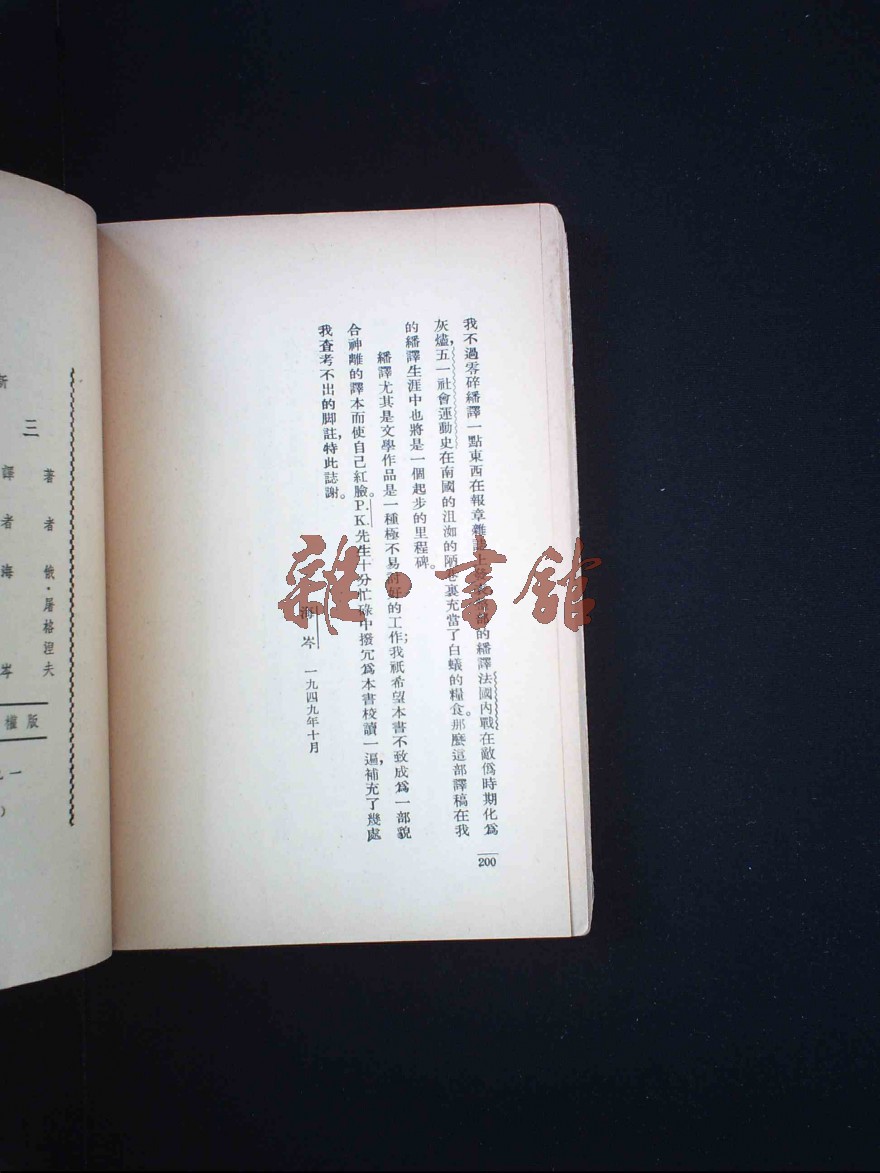 我不過零碎繙譯一點東西在報章雜上的繙譯法國內戰在敵僞時期化爲
灰燼,五一社會運動史在南國的沮洳的陋巷裏充當了白蟻的糧食。那麼這部譯稿在我
的繙譯生涯中也將是一個起步的里程碑。
繙譯尤其是文學作品是一種極不易討好的工作;我祇希望本書不致成爲一部貌
合神離的譯本而使自己紅臉。P.K.先生十分忙碌中撥冗爲本書校讀一遍,補充了幾處
我查考不出的脚註,特此誌謝。
海岑 一九四九年十月
200
雜·書館
著者 俄·屠格涅夫
譯者海岑
三
新
版權
一九
)